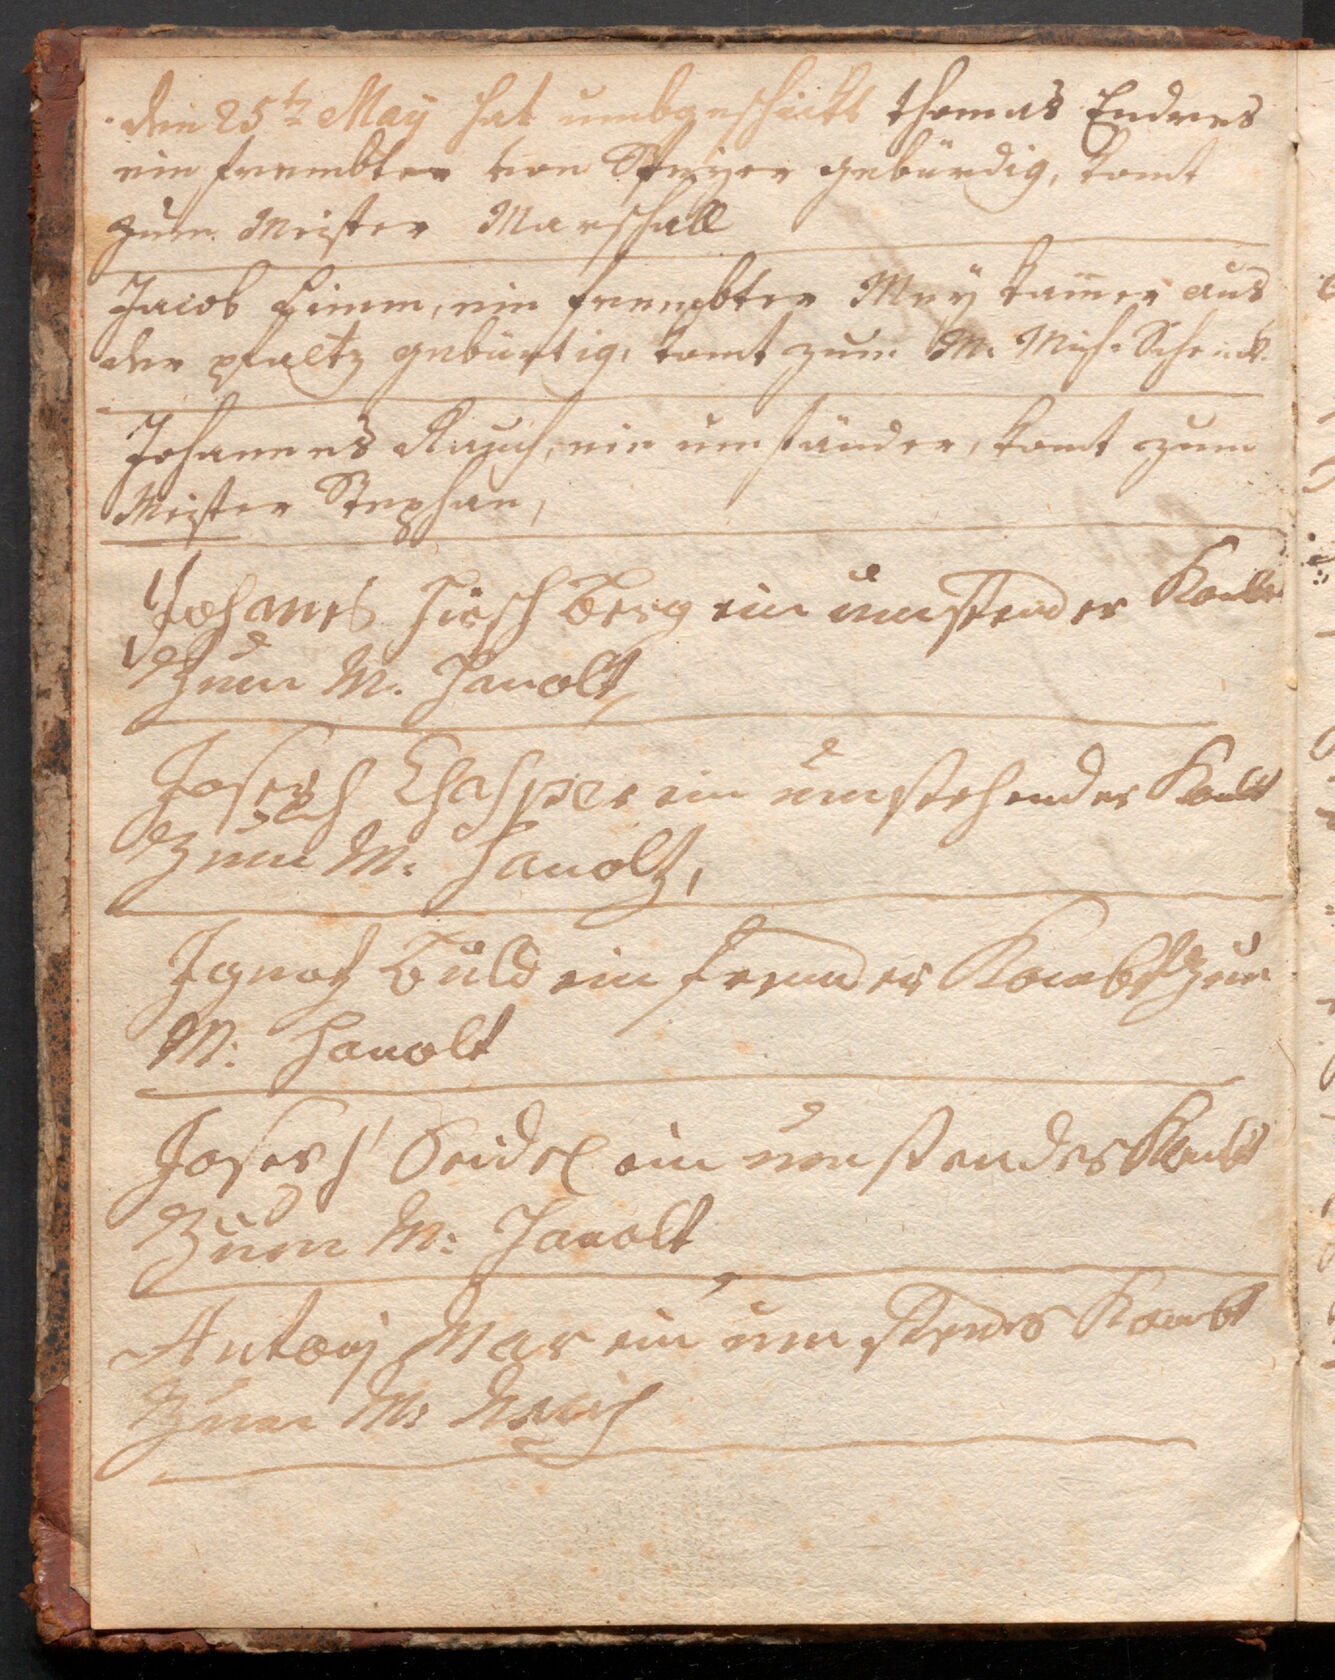 den 25t May hat umbgeschickt thomas Endres
ein frembter von Speyer gebürdig, komt
zum Meister Marschall
Jacob Limm, ein frembter Mey aus
der pfaltz gebürtig, komt zum M. Mich. Schenck.
Johannes Rauch, ein umständer, komt zum
Meister Stephan,
Johanes Hirsch Berg ein umstender Kombt
Zum M. Hanolt
Joseph Chasper ein umstehender Kombt
Zum M: Hanolt,
Ignatz Buld ein fremder Kombt Zum
M: Hanolt
Joseph Seidel ein umstender Kombt
Zum M: Hanolt
Antonj Mar ein umstender Kombt
Zum M: